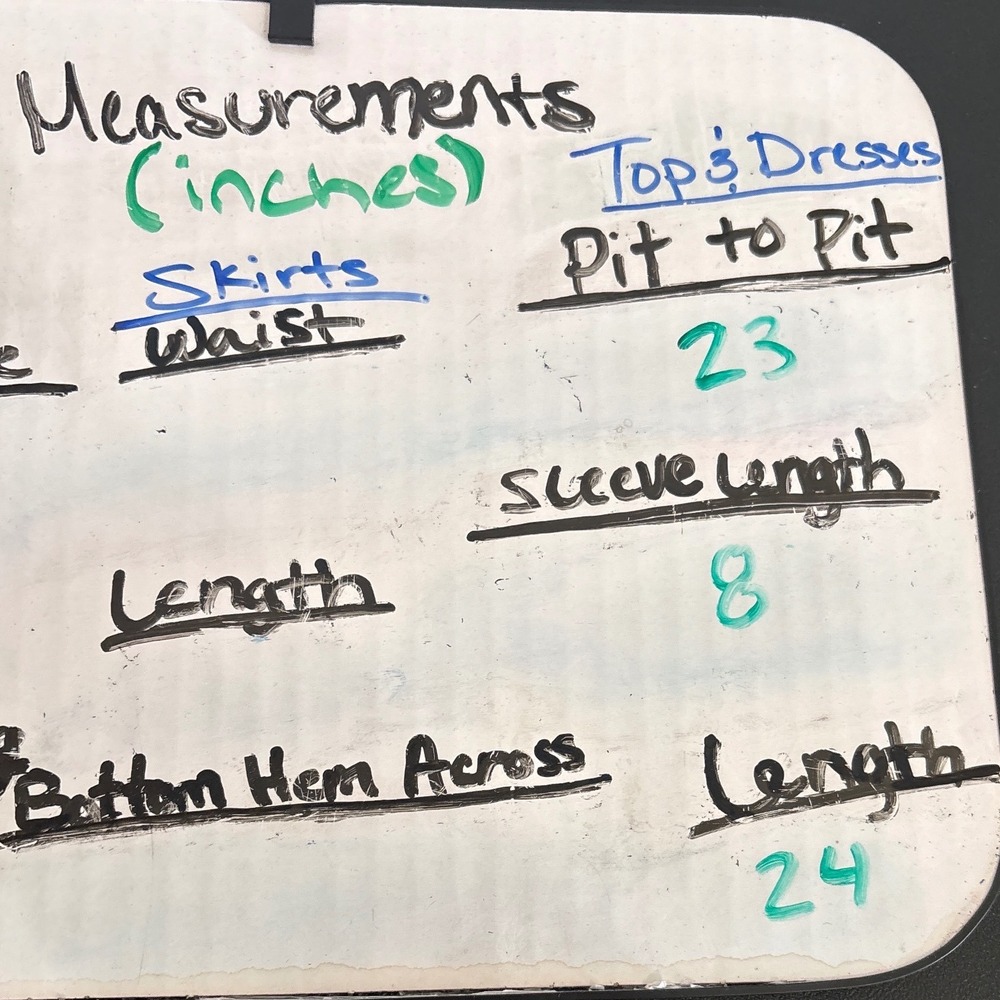 Measurements
(inches)
Skirts
Waist
Length
Bottom Hem Across
Top & Dresses
Pit to Pit
23
Sleeve Length
8
Length
24